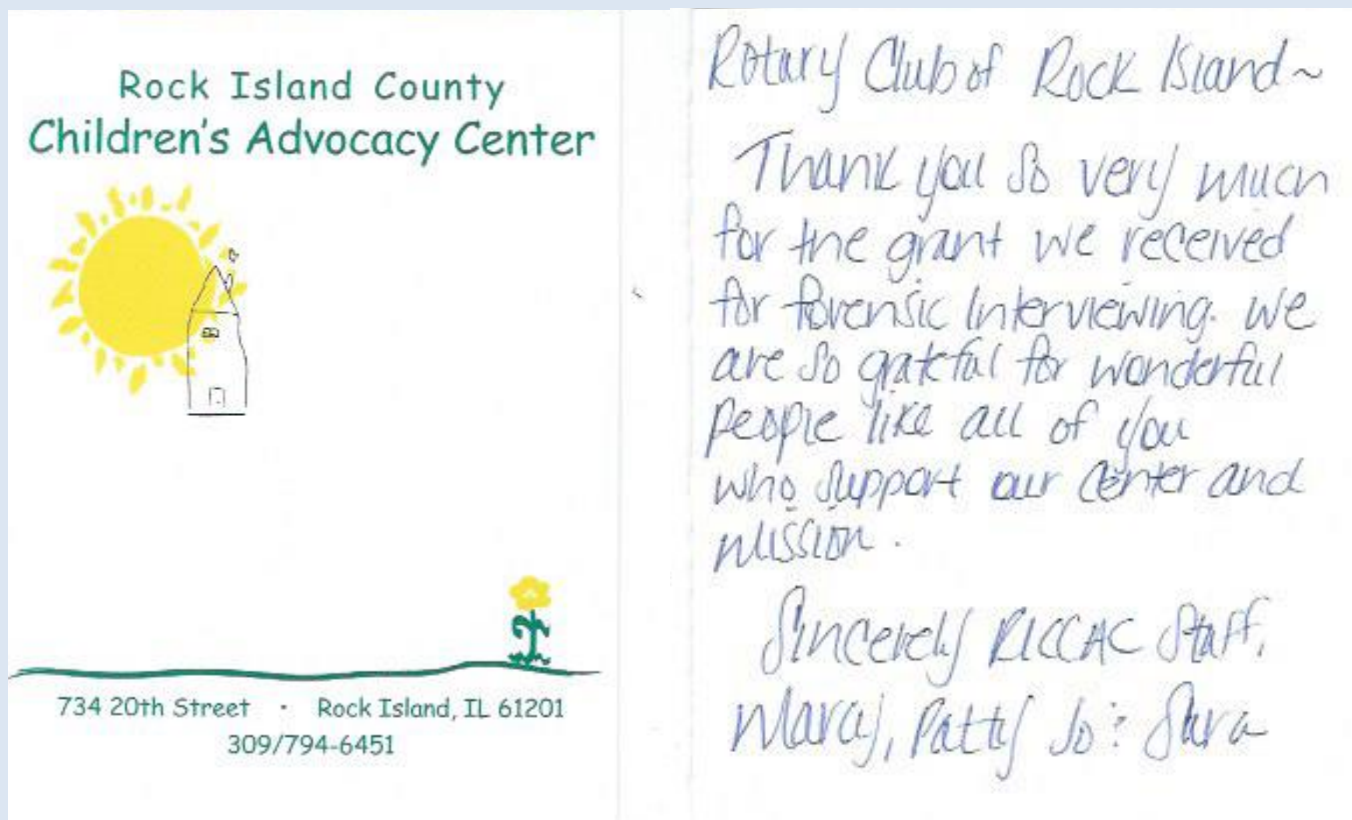 Rock Island County
Children's Advocacy Center
734 20th Street · Rock Island, IL 61201
309/794-6451
Rotary Club of Rock Island~
Thank you so very much
for the grant we received
for forensic Interviewing. We
are so grateful for wonderful
people like all of you
who support our center and
mission.
Sincerely RICCAC Staff,
Marcy, Patty Jo & Sara